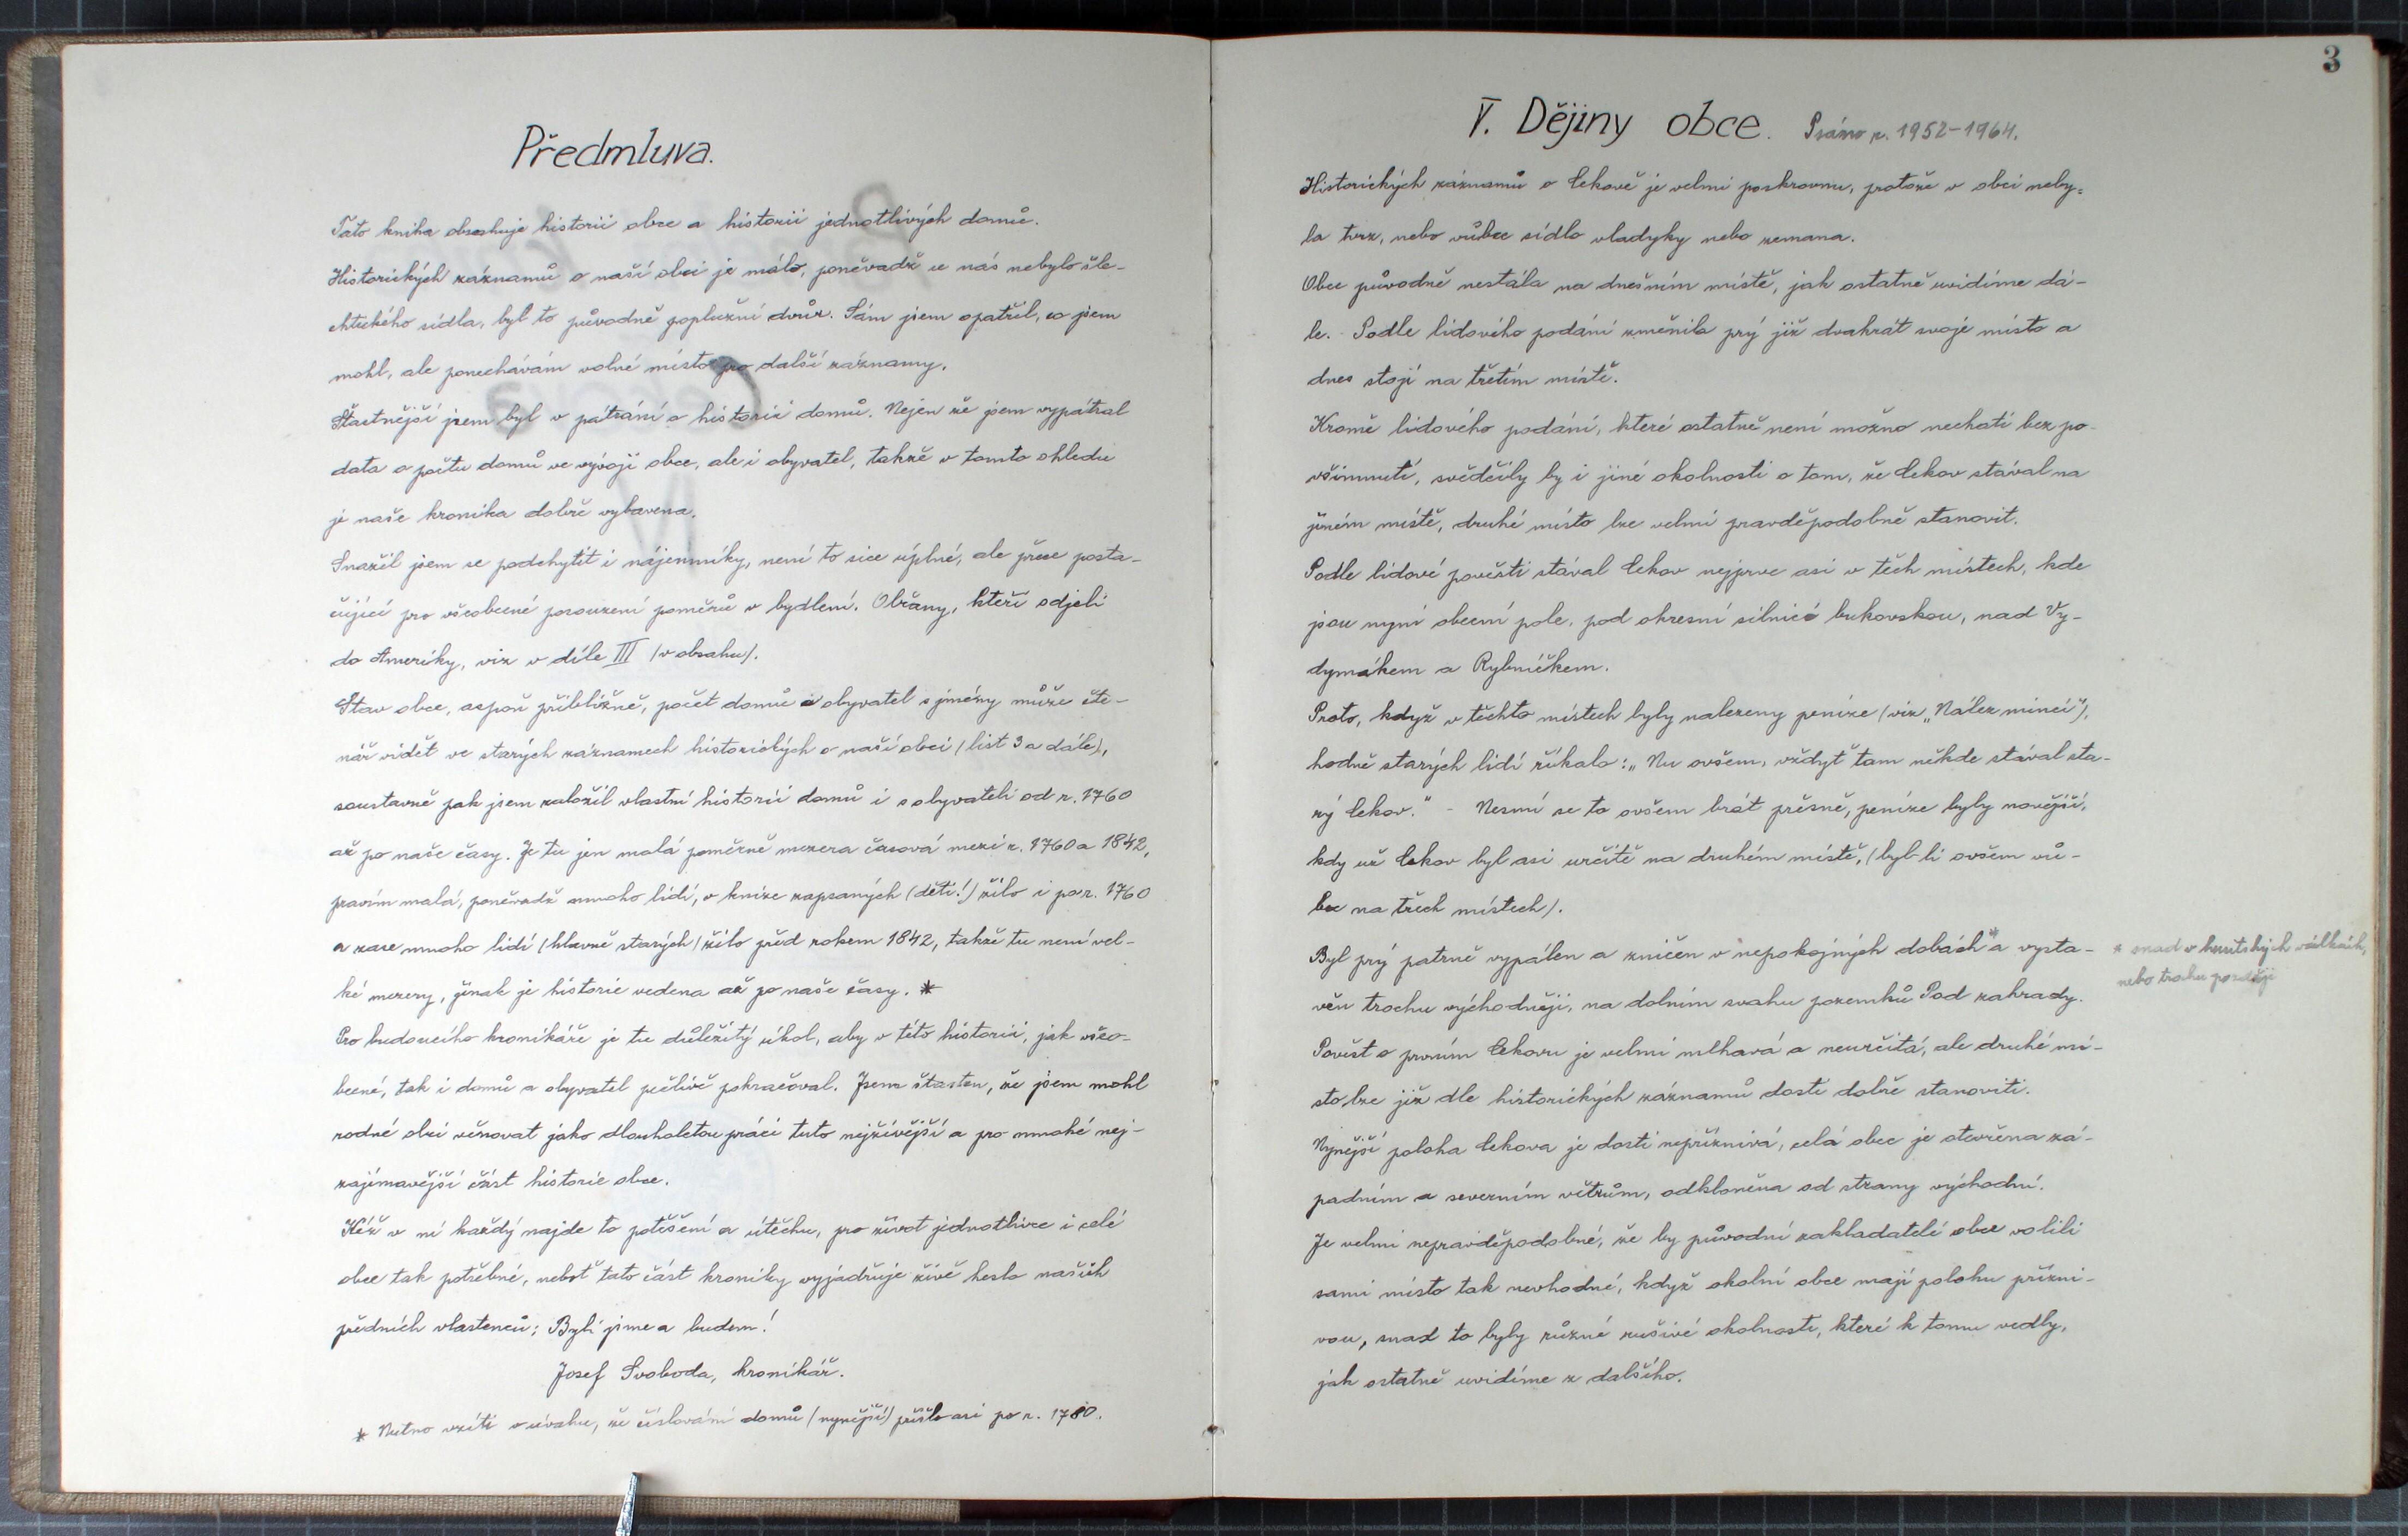 Předmluva.
Tato kniha obsahuje historii obce a historii jednotlivých domů.
Historických záznamů o naší obci je málo, poněvadž u nás nebylo šle-
chtického sídla, byl to původně poplužní dvůr. Sám jsem opatřil, co jsem
mohl, ale ponechávám volné místo pro další záznamy.
Šťastnější jsem byl v pátrání o historii domů. Nejen že jsem vypátral
data o počtu domů ve vývoji obce, ale i obyvatel, takže v tomto ohledu
je naše kronika dobře vybavena.
Snažil jsem se podchytit i nájemníky, není to sice úplné, ale přece posta-
čující pro všeobecné posouzení poměrů v bydlení. Občany, kteří odjeli
do Ameriky, viz v díle III (v obsahu).
Stav obce, aspoň přibližně, počet domů i obyvatel s jmény může čte-
nář vidět ve starých záznamech historických o naší obci (list 3 a dále),
soustavně pak jsem založil vlastní historii domů i s obyvateli od r. 1760
až po naše časy. Je tu jen malá poměrně mezera časová mezi r. 1760 a 1842,
pravím malá, poněvadž mnoho lidí, v knize zapsaných (děti!) žilo i po r. 1760
a zase mnoho lidí (hlavně starých) žilo před rokem 1842, takže tu není vel-
ké mezery, jinak je historie vedena až po naše časy. *
Pro budoucího kronikáře je tu důležitý úkol, aby v této historii, jak všeo-
becné, tak i domů a obyvatel pečlivě pokračoval. Jsem šťasten, že jsem mohl
rodné obci věnovat jako dlouholetou práci tuto nejživější a pro mnohé nej-
zajímavější část historie obce.
Kéž v ní každý najde to potěšení a útěchu, pro život jednotlivce i celé
obce tak potřebné, neboť tato část kroniky vyjadřuje živě heslo našich
předních vlastenců: Byli jsme a budem!
Josef Svoboda, kronikář.
* Nutno vzíti v úvahu, že číslování domů (nynější) přišlo asi po r. 1780.
3
V. Dějiny obce. Psáno r. 1952-1964.
Historických záznamů o Cekově je velmi poskrovnu, protože v obci neby-
la tvrz, nebo vůbec sídlo vladyky nebo zemana.
Obec původně nestála na dnešním místě, jak ostatně uvidíme dá-
le. Podle lidového podání změnila prý již dvakrát svoje místo a
dnes stojí na třetím místě.
Kromě lidového podání, které ostatně není možno nechati bez po-
všimnutí, svědčily by i jiné okolnosti o tom, že Cekov stával na
jiném místě, druhé místo lze velmi pravděpodobně stanovit.
Podle lidové pověsti stával Cekov nejprve asi v těch místech, kde
jsou nyní obecní pole, pod okresní silnicí bukovskou, nad Vy-
dymákem a Rybníčkem.
Proto, když v těchto místech byly nalezeny peníze (viz „Nález mincí"),
hodně starých lidí říkalo: „Nu ovšem, vždyť tam někde stával sta-
rý Cekov." - Nesmí se to ovšem brát přesně, peníze byly novější,
kdy už Cekov byl asi určitě na druhém místě, (byl-li ovšem vů-
bec na třech místech).
Byl prý patrně vypálen a zničen v nepokojných dobách* a vysta-
věn trochu východněji, na dolním svahu pozemků Pod zahrady.
* snad v husitských válkách,
nebo trochu později
Pověst o prvním Cekovu je velmi mlhavá a neurčitá, ale druhé mí-
sto lze již dle historických záznamů dosti dobře stanoviti.
Nynější poloha Cekova je dosti nepříznivá, celá obec je otevřena zá-
padním a severním větrům, odkloněna od strany východní.
Je velmi nepravděpodobné, že by původní zakladatelé obce volili
sami místo tak nevhodné, když okolní obce mají polohu přízni-
vou, snad to byly různé rušivé okolnosti, které k tomu vedly,
jak ostatně uvidíme z dalšího.